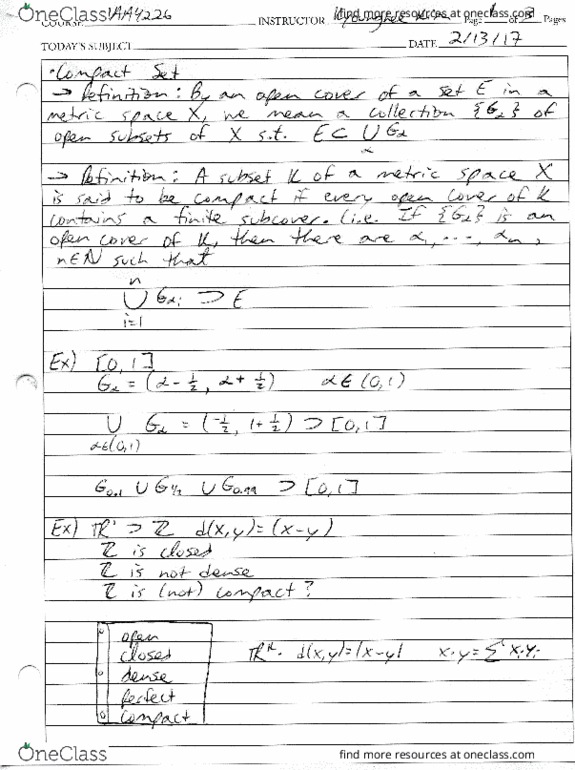 OneClass
MAA4226
INSTRUCTOR
find more resources at oneclass.com
Page 1 of 3 Pages
TODAY'S SUBJECT
DATE 2/13/17
• Compact Set
→ Definition: By an open cover of a set E in a
metric space X, we mean a collection {Gα} of
open subsets of X s.t. E ⊂ ∪ Gα
α
→ Definition: A subset K of a metric space X
is said to be compact if every open cover of K
contains a finite subcover. (i.e. If {Gα} is an
open cover of K, then there are α1, ..., αn,
n∈N such that
n
∪ Gαi ⊃ E
i=1
Ex) [0,1]
Gα = (α - 1/2, α + 1/2) α∈(0,1)
∪ Gα = (-1/2, 1+1/2) ⊃ [0,1]
α∈(0,1)
G0.1 ∪ G1/2 ∪ G0.99 ⊃ [0,1]
Ex) ℝ¹ ⊃ ℤ d(x,y)=(x-y)
ℤ is closed
ℤ is not dense
ℤ is (not) compact?
open
closed
dense
perfect
compact
ℝᴷ. d(x,y)=|x-y| x·y=Σ xᵢyᵢ
OneClass
find more resources at oneclass.com